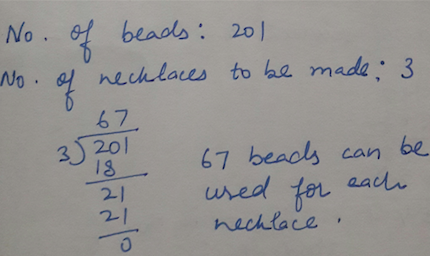 No. of beads: 201
No. of necklaces to be made: 3
67
3)201
18
21
21
0
67 beads can be
used for each
necklace.